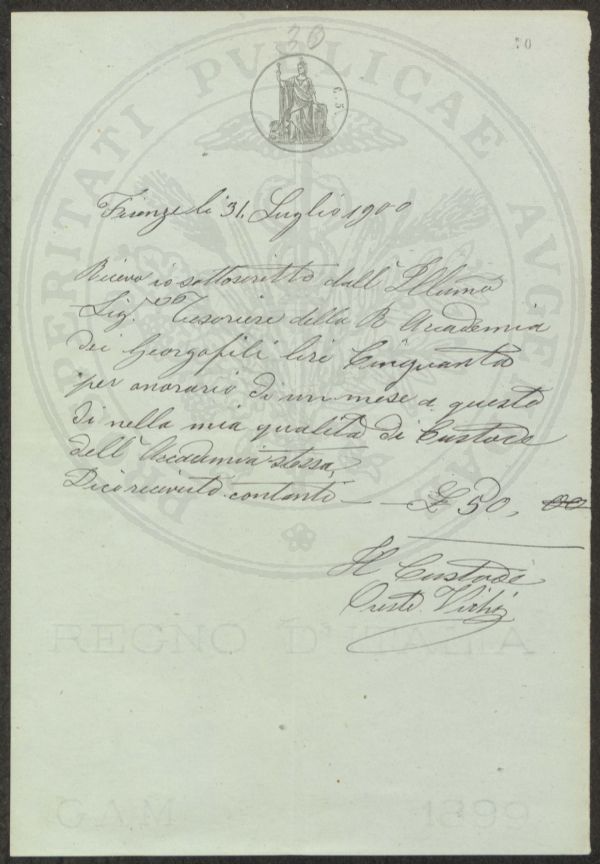 30
70
C. 5
PROSPERITATI PUBLICAE AUGENDAE
Firenze li 31. Luglio 1900
Ricevo io sottoscritto dall' Illumo
Sig. Tesoriere della R Academia
dei Georgofili lire Cinquanta
per onorario di un mese a questo
dì nella mia qualità di Custode
dell' Accademia stessa,
Dico ricevuto contanti — £ 50, 00
Il Custode
Oreste
REGNO D'ITALIA
GAM 1899